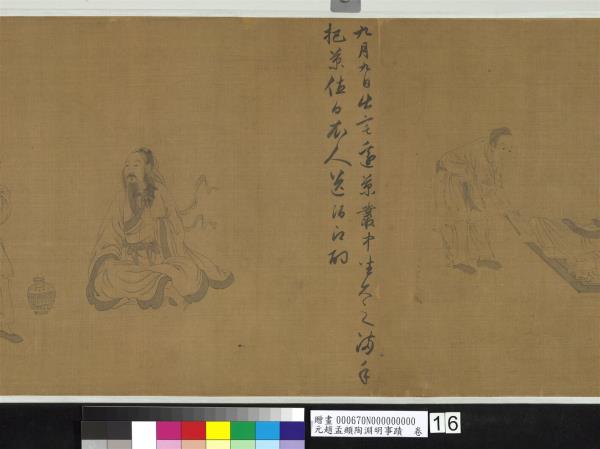 九月九日出宅邊菊叢中坐久之滿手
把菊值白衣人送酒即酌
贈畫 000670N000000000
元趙孟頫陶淵明事蹟 卷
16